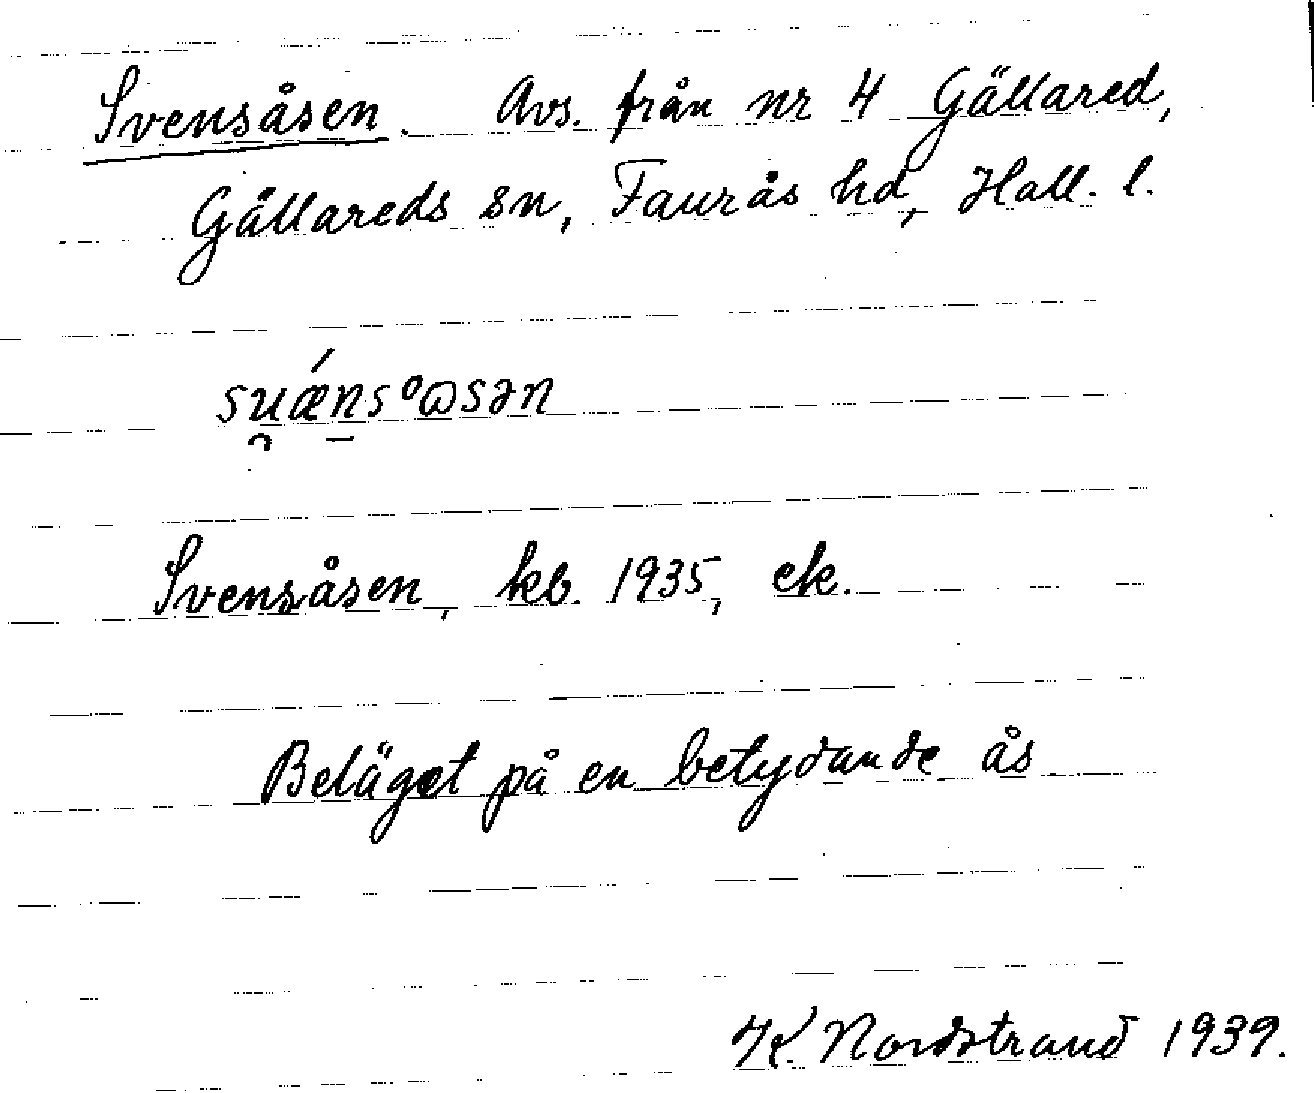 Svensåsen. Avs. från nr 4 Gällared,
Gällareds sn, Faurås hd, Hall. l.
Svensåsen, kb. 1935, ek.
Beläget på en betydande ås
Nordstrand 1939.